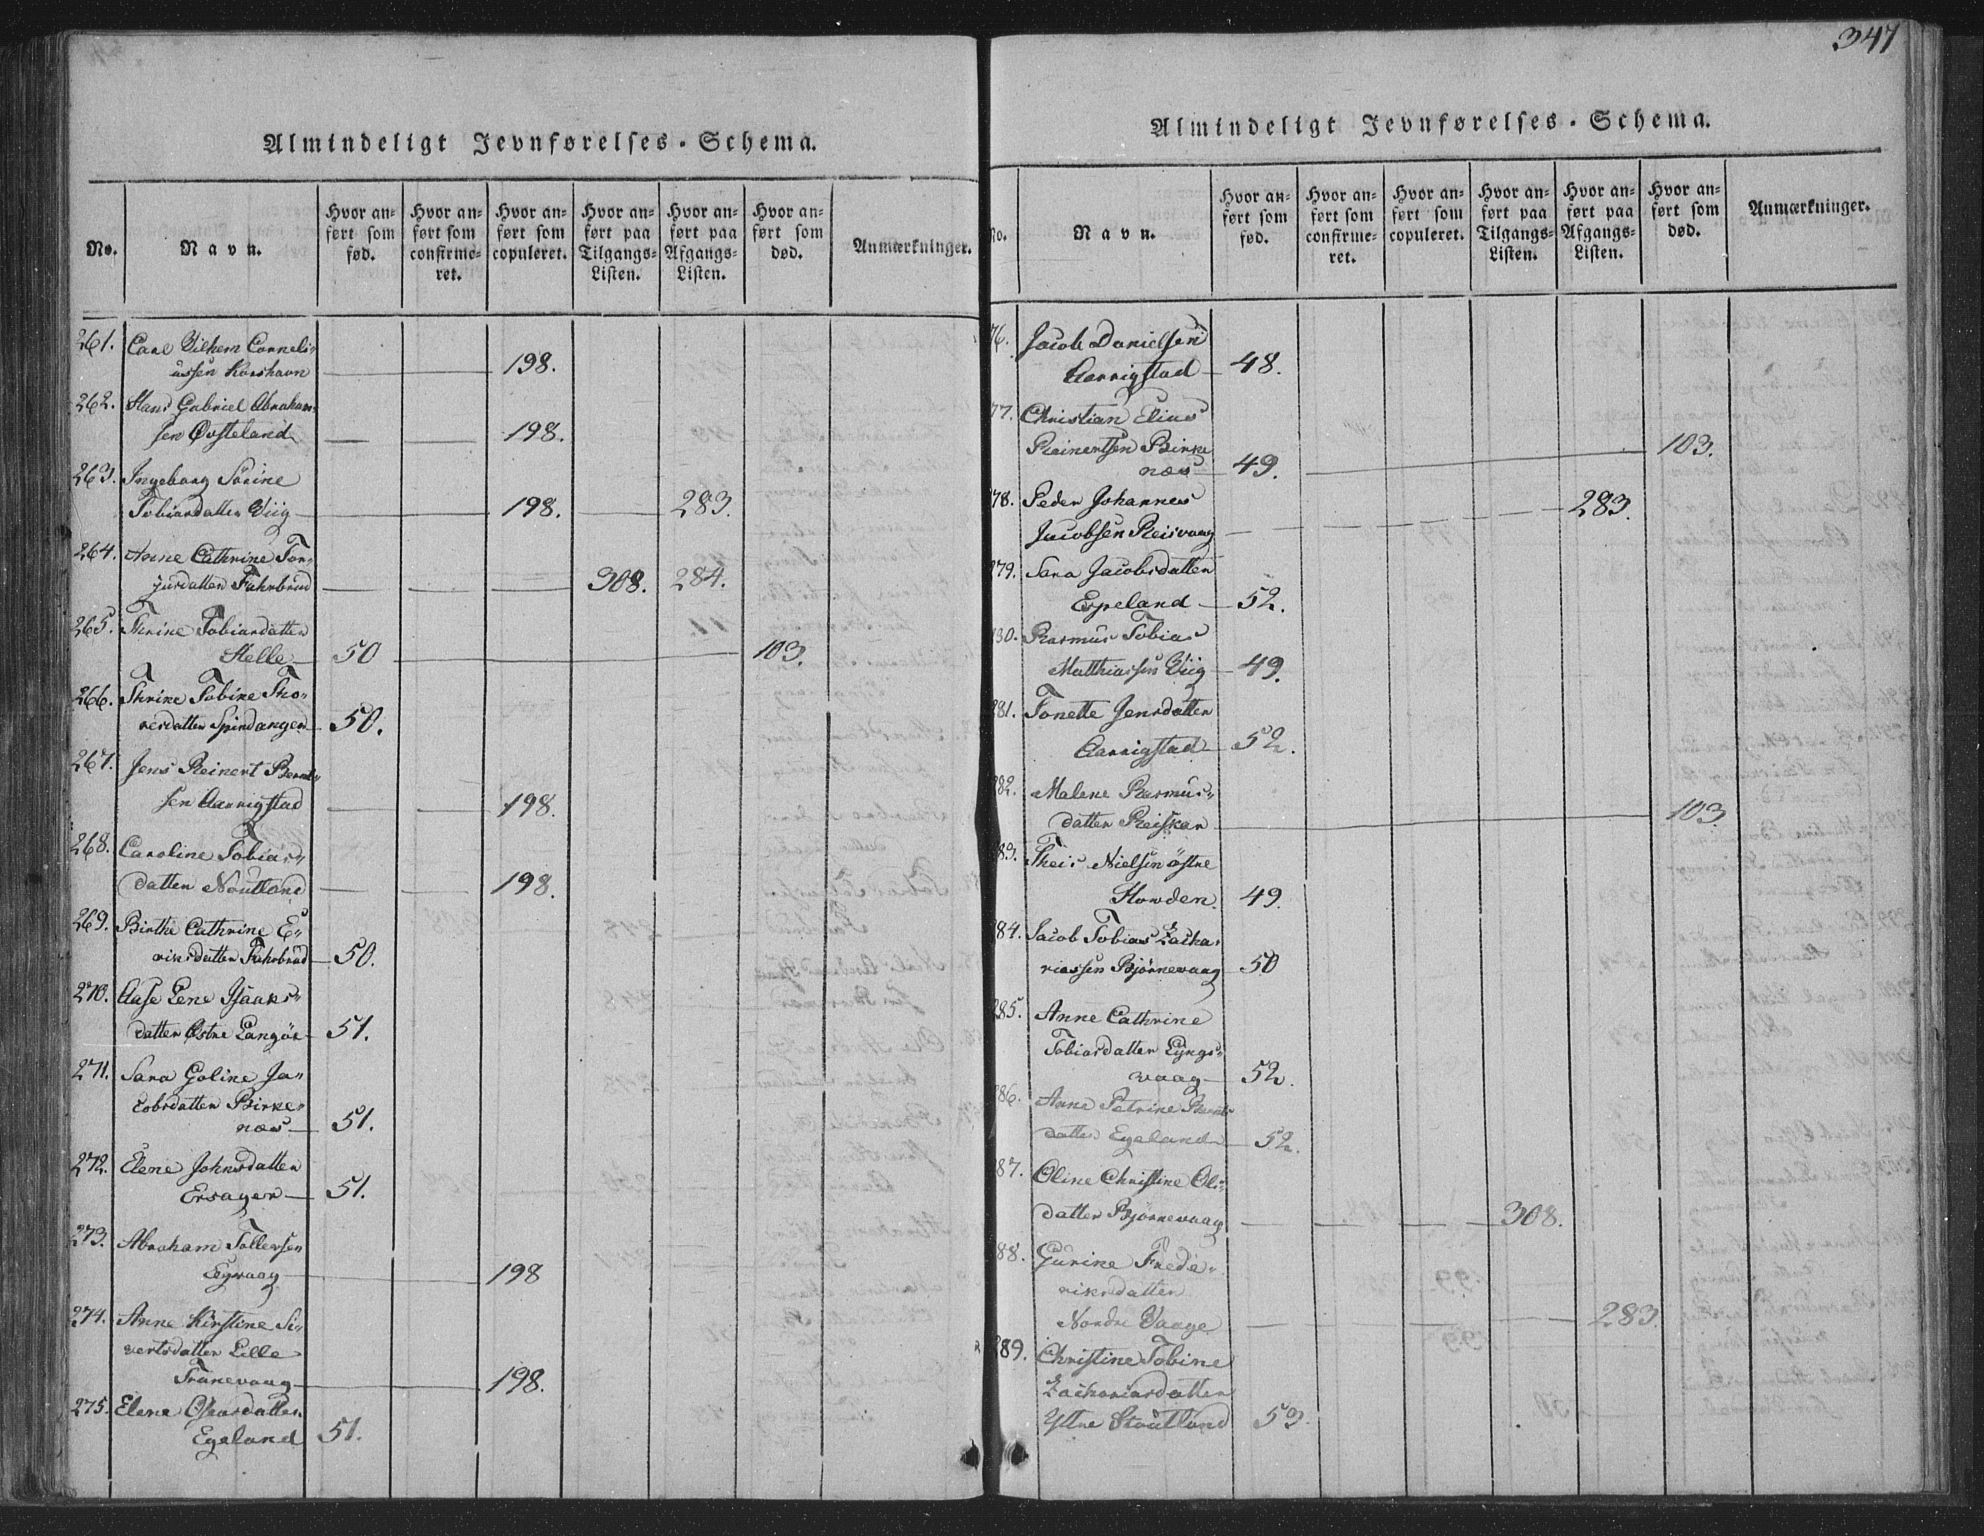 347
Almindeligt Jevnførelses-Schema.
No.
Navn.
Hvor an-
ført som
fød.
Hvor an-
ført som
confirme-
ret.
Hvor an-
ført som
copuleret.
Hvor an-
ført paa
Tilgangs-
Listen.
Hvor an-
ført paa
Afgangs-
Listen.
Hvor an-
ført som
død.
Anmærkninger.
261. Carl Vilhem Corneli-
ussen Korshavn 198.
262. Hans Gabriel Abraham-
sen Øvsteland 198.
263. Ingeborg Sørine
Tobiasdatter Viig 198. 283.
264. Anne Cathrine Tor-
jusdatter Fuhrbrud 308. 284.
265. Thrine Tobiasdatter
Helle 50 103.
266. Thrine Tobine Tho-
resdatter Spindanger 50.
267. Jens Reinert Bernt-
sen Aarrigstad 198.
268. Caroline Tobias-
datter Noutland 198.
269. Birthe Cathrine E-
riksdatter Fuhrbrud 50.
270. Aase Lene Isaaks-
datter Østre Langøe 51.
271. Sara Goline Ja-
cobsdatter Birke-
næs 51.
272. Elene Johnsdatter
Ersager 51.
273. Abraham Tollevsen
Eegvaag 198
274. Anne Kirstine Si-
vertsdatter Lille
Tranevaag 198.
275. Elene Osarsdatter
Egeland 51.
Almindeligt Jevnførelses-Schema.
No.
Navn.
Hvor an-
ført som
fød.
Hvor an-
ført som
confirme-
ret.
Hvor an-
ført som
copuleret.
Hvor an-
ført paa
Tilgangs-
Listen.
Hvor an-
ført paa
Afgangs-
Listen.
Hvor an-
ført som
død.
Anmærkninger.
76. Jacob Danielsen
Aarrigstad 48.
77. Christian Elias
Reinertsen Birke
næs 49. 103.
78. Peder Johannes
Jacobsen Reisvaag 283.
279. Sara Jacobsdatter
Espeland 52.
80. Rasmus Tobias
Matthiassen Viig 49.
281. Tonette Jensdatter
Aarrigstad 52.
82. Malene Rasmus-
datter Reiskar 103.
83. Theis Nielsen østre
Howden 49.
84. Jacob Tobias Zacha-
riassen Bjørnevaag 50
285. Anne Cathrine
Tobiasdatter Lyngs-
vaag 52.
86. Anne Petrine Bernts
datter Egeland 52.
87. Oline Christine Oli-
datter Bjørnevaag 308.
88. Gurine Frede-
riksdatter
Nordre Vaage 283
289. Christine Tobine
Zachariasdatter
Yttre Stoutland 53.